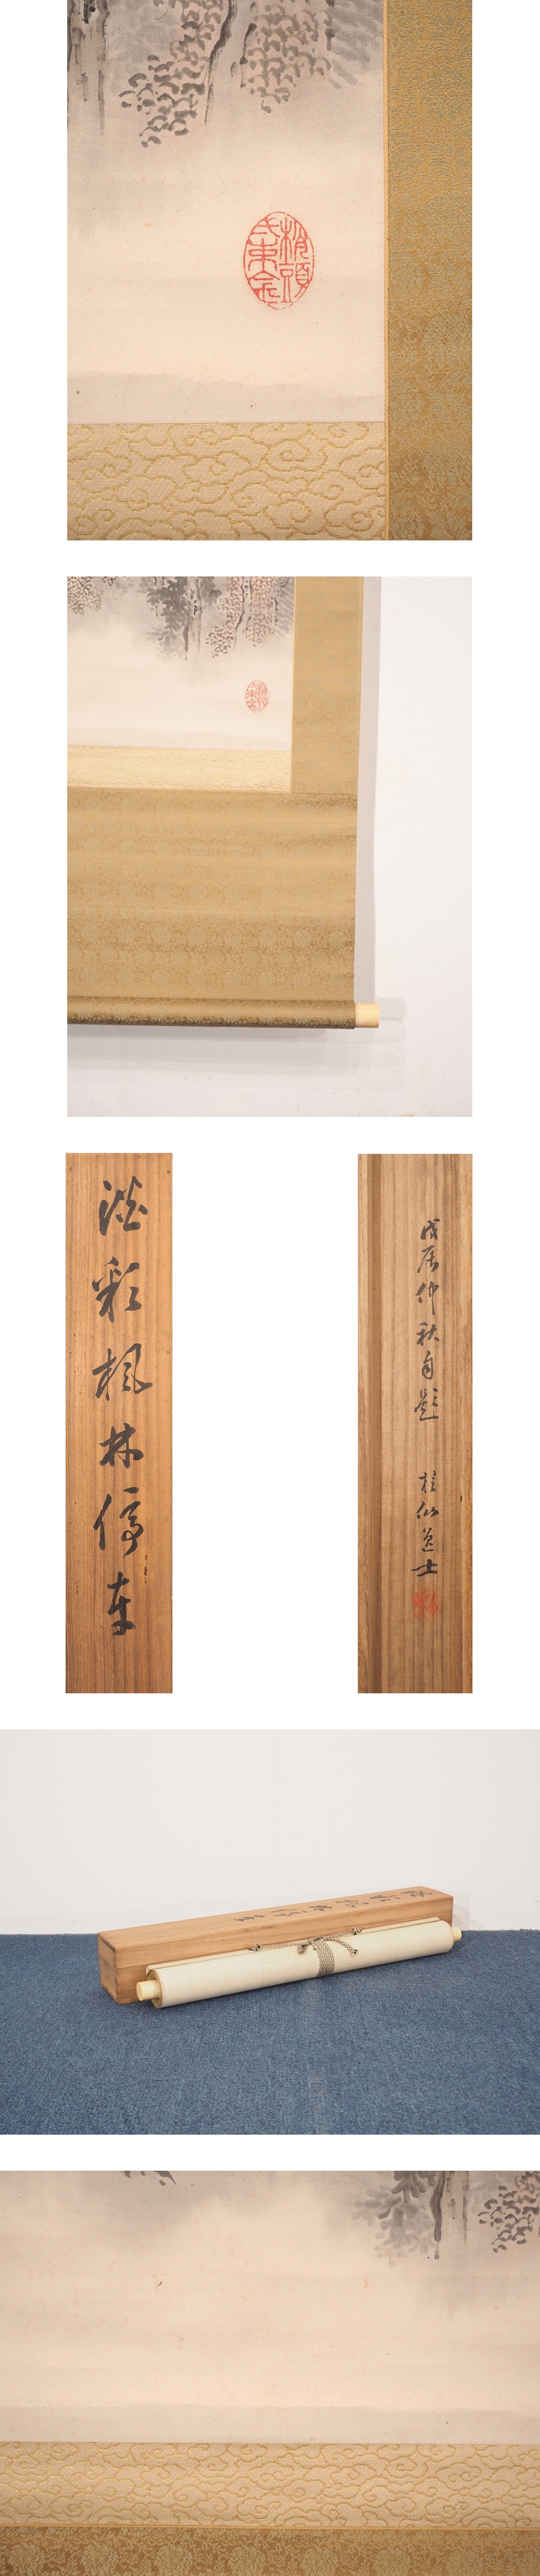 淡彩楓林停車
戊辰仲秋自題 桂仙道士